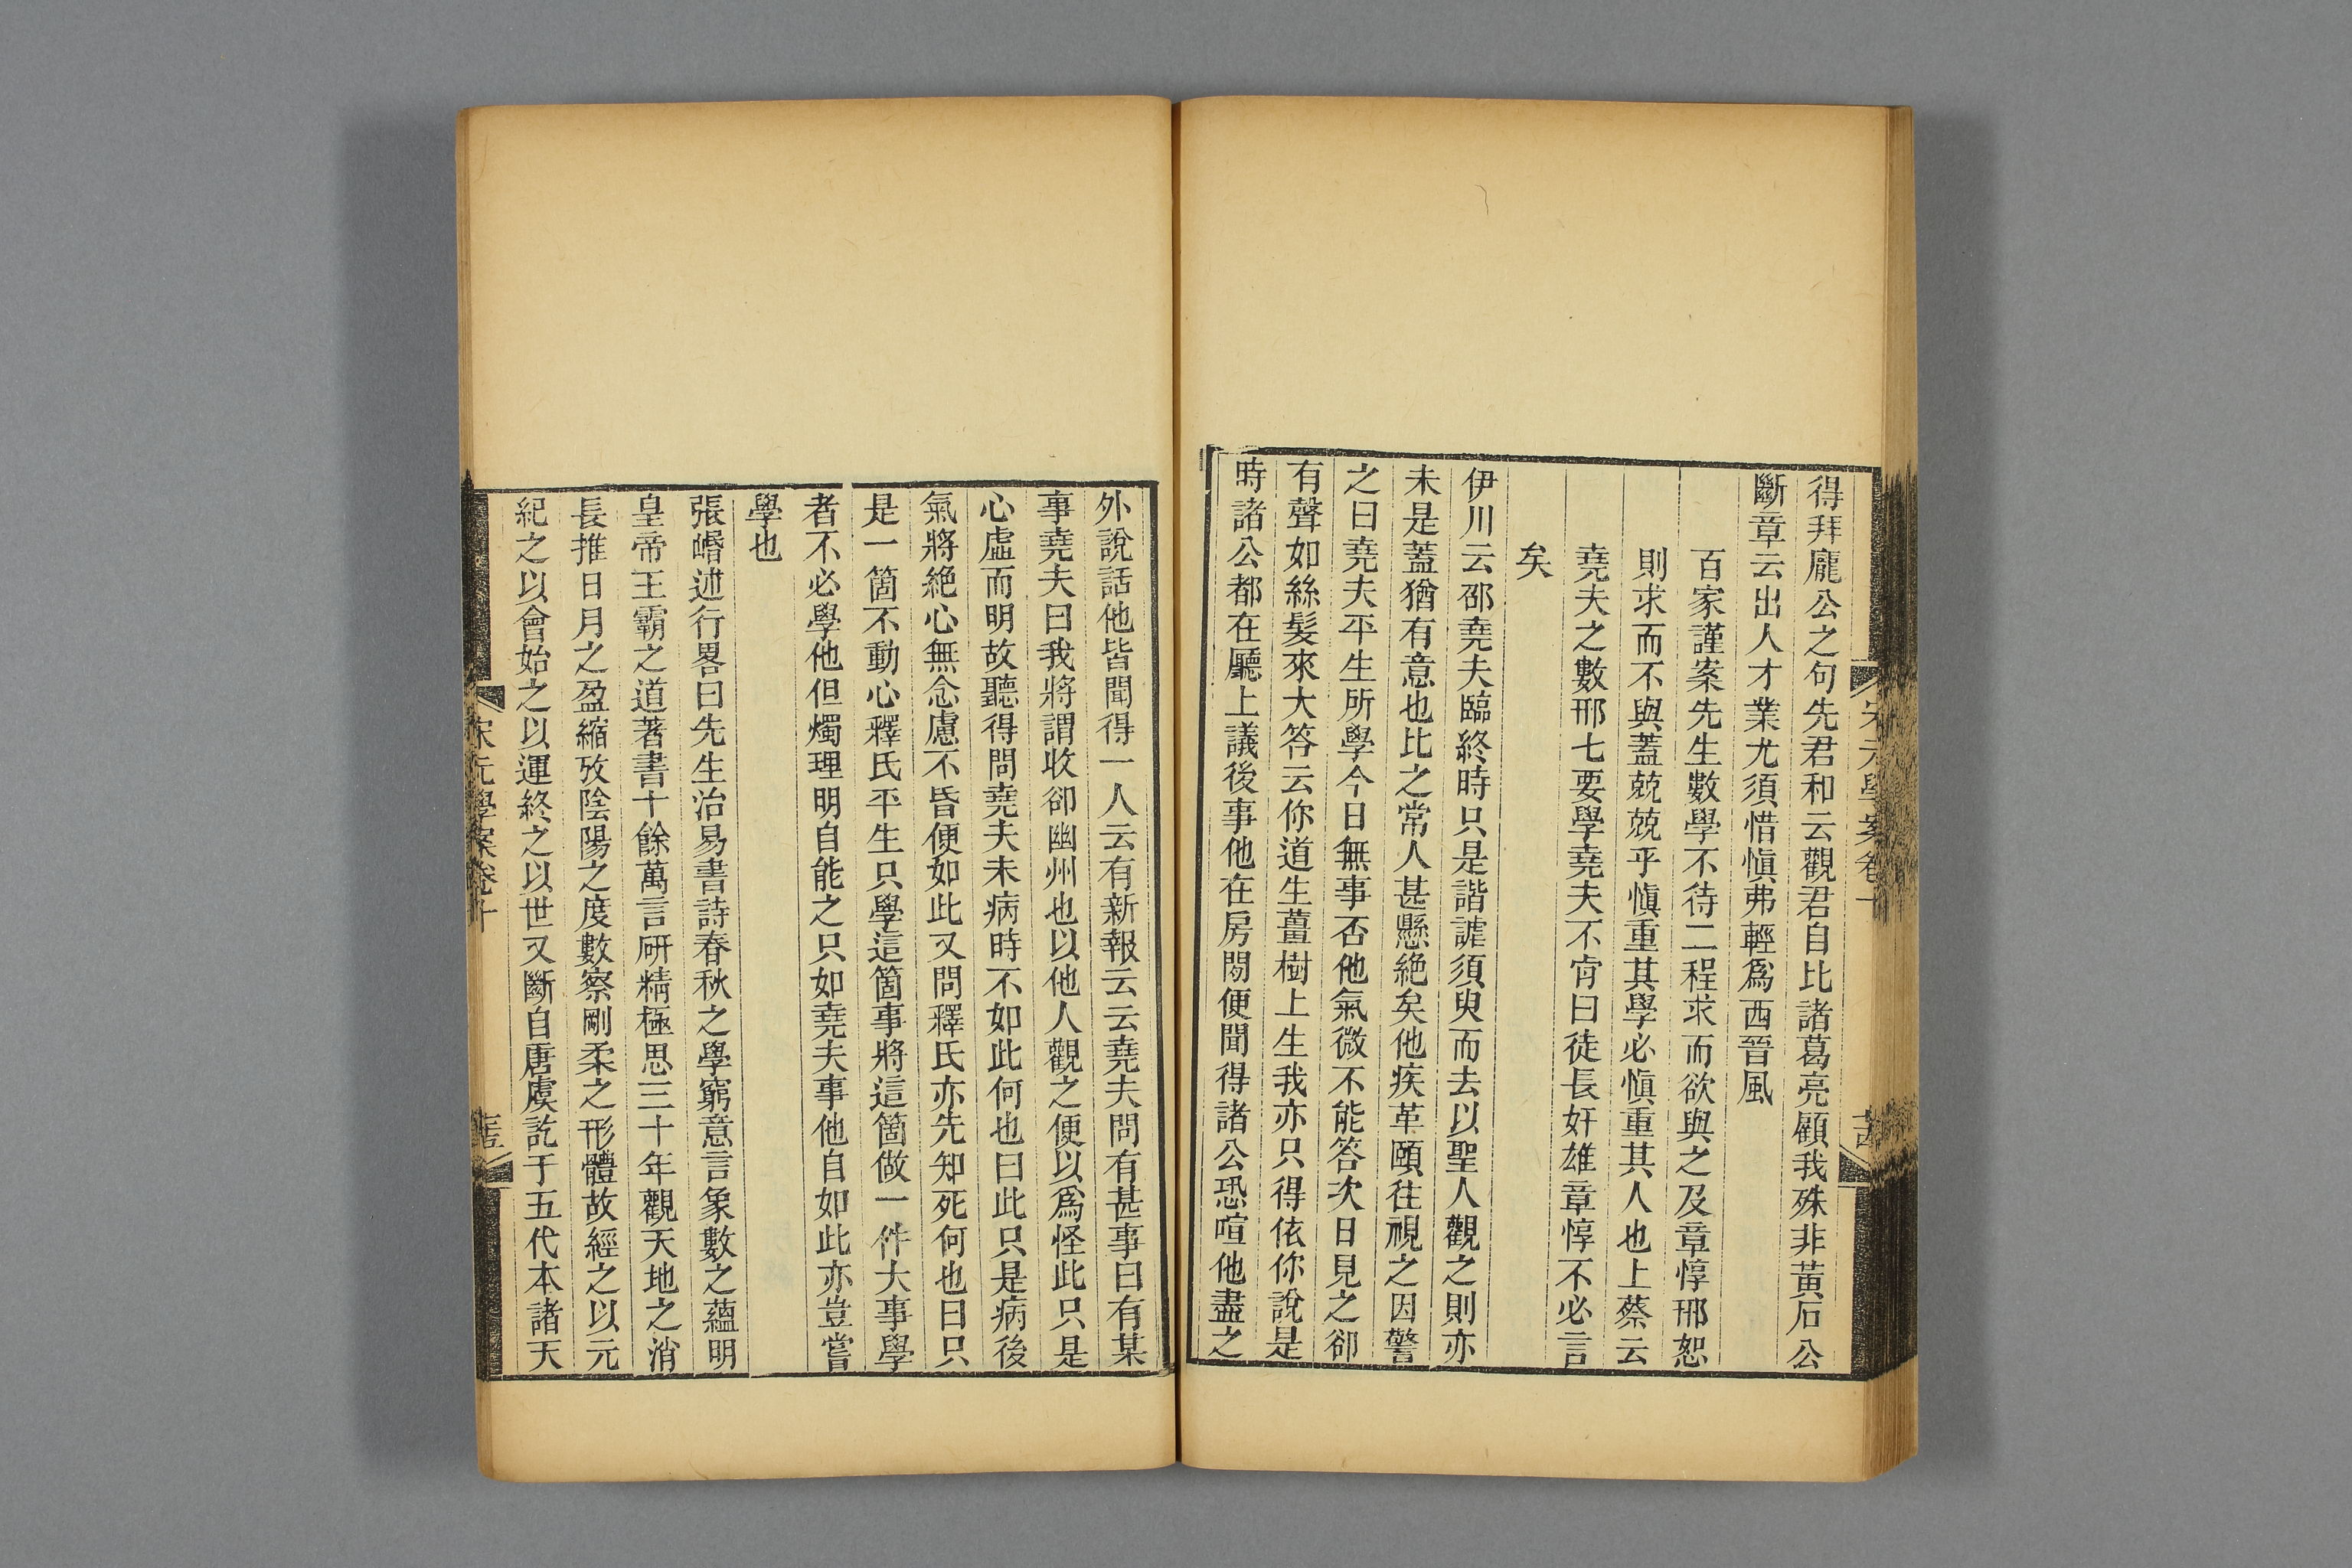 得拜龐公之句先君和云觀君自比諸葛亮顧我殊非黃石公
斷章云出人才業尤須惜愼弗輕爲西晉風
百家謹案先生數學不待二程求而欲與之及章惇邢恕
則求而不與蓋兢兢乎愼重其學必愼重其人也上蔡云
堯夫之數邢七要學堯夫不肯曰徒長奸雄章惇不必言
矣
伊川云邵堯夫臨終時只是諧謔須臾而去以聖人觀之則亦
未是蓋猶有意也比之常人甚懸絕矣他疾革頤往視之因警
之曰堯夫平生所學今日無事否他氣微不能答次日見之卻
有聲如絲髮來大答云你道生薑樹上生我亦只得依你說是
時諸公都在廳上議後事他在房閒便聞得諸公恐喧他盡之
外說話他皆聞得一人云有新報云云堯夫問有甚事曰有某
事堯夫曰我將謂收卻幽州也以他人觀之便以爲怪此只是
心虛而明故聽得問堯夫未病時不如此何也曰此只是病後
氣將絕心無念慮不昏便如此又問釋氏亦先知死何也曰只
是一箇不動心釋氏平生只學這箇事將這箇做一件大事學
者不必學他但燭理明自能之只如堯夫事他自如此亦豈嘗
學也
張㟭述行畧曰先生治易書詩春秋之學窮意言象數之蘊明
皇帝王霸之道著書十餘萬言研精極思三十年觀天地之消
長推日月之盈縮攷陰陽之度數察剛柔之形體故經之以元
紀之以會始之以運終之以世又斷自唐虞訖于五代本諸天
宋元學案卷十